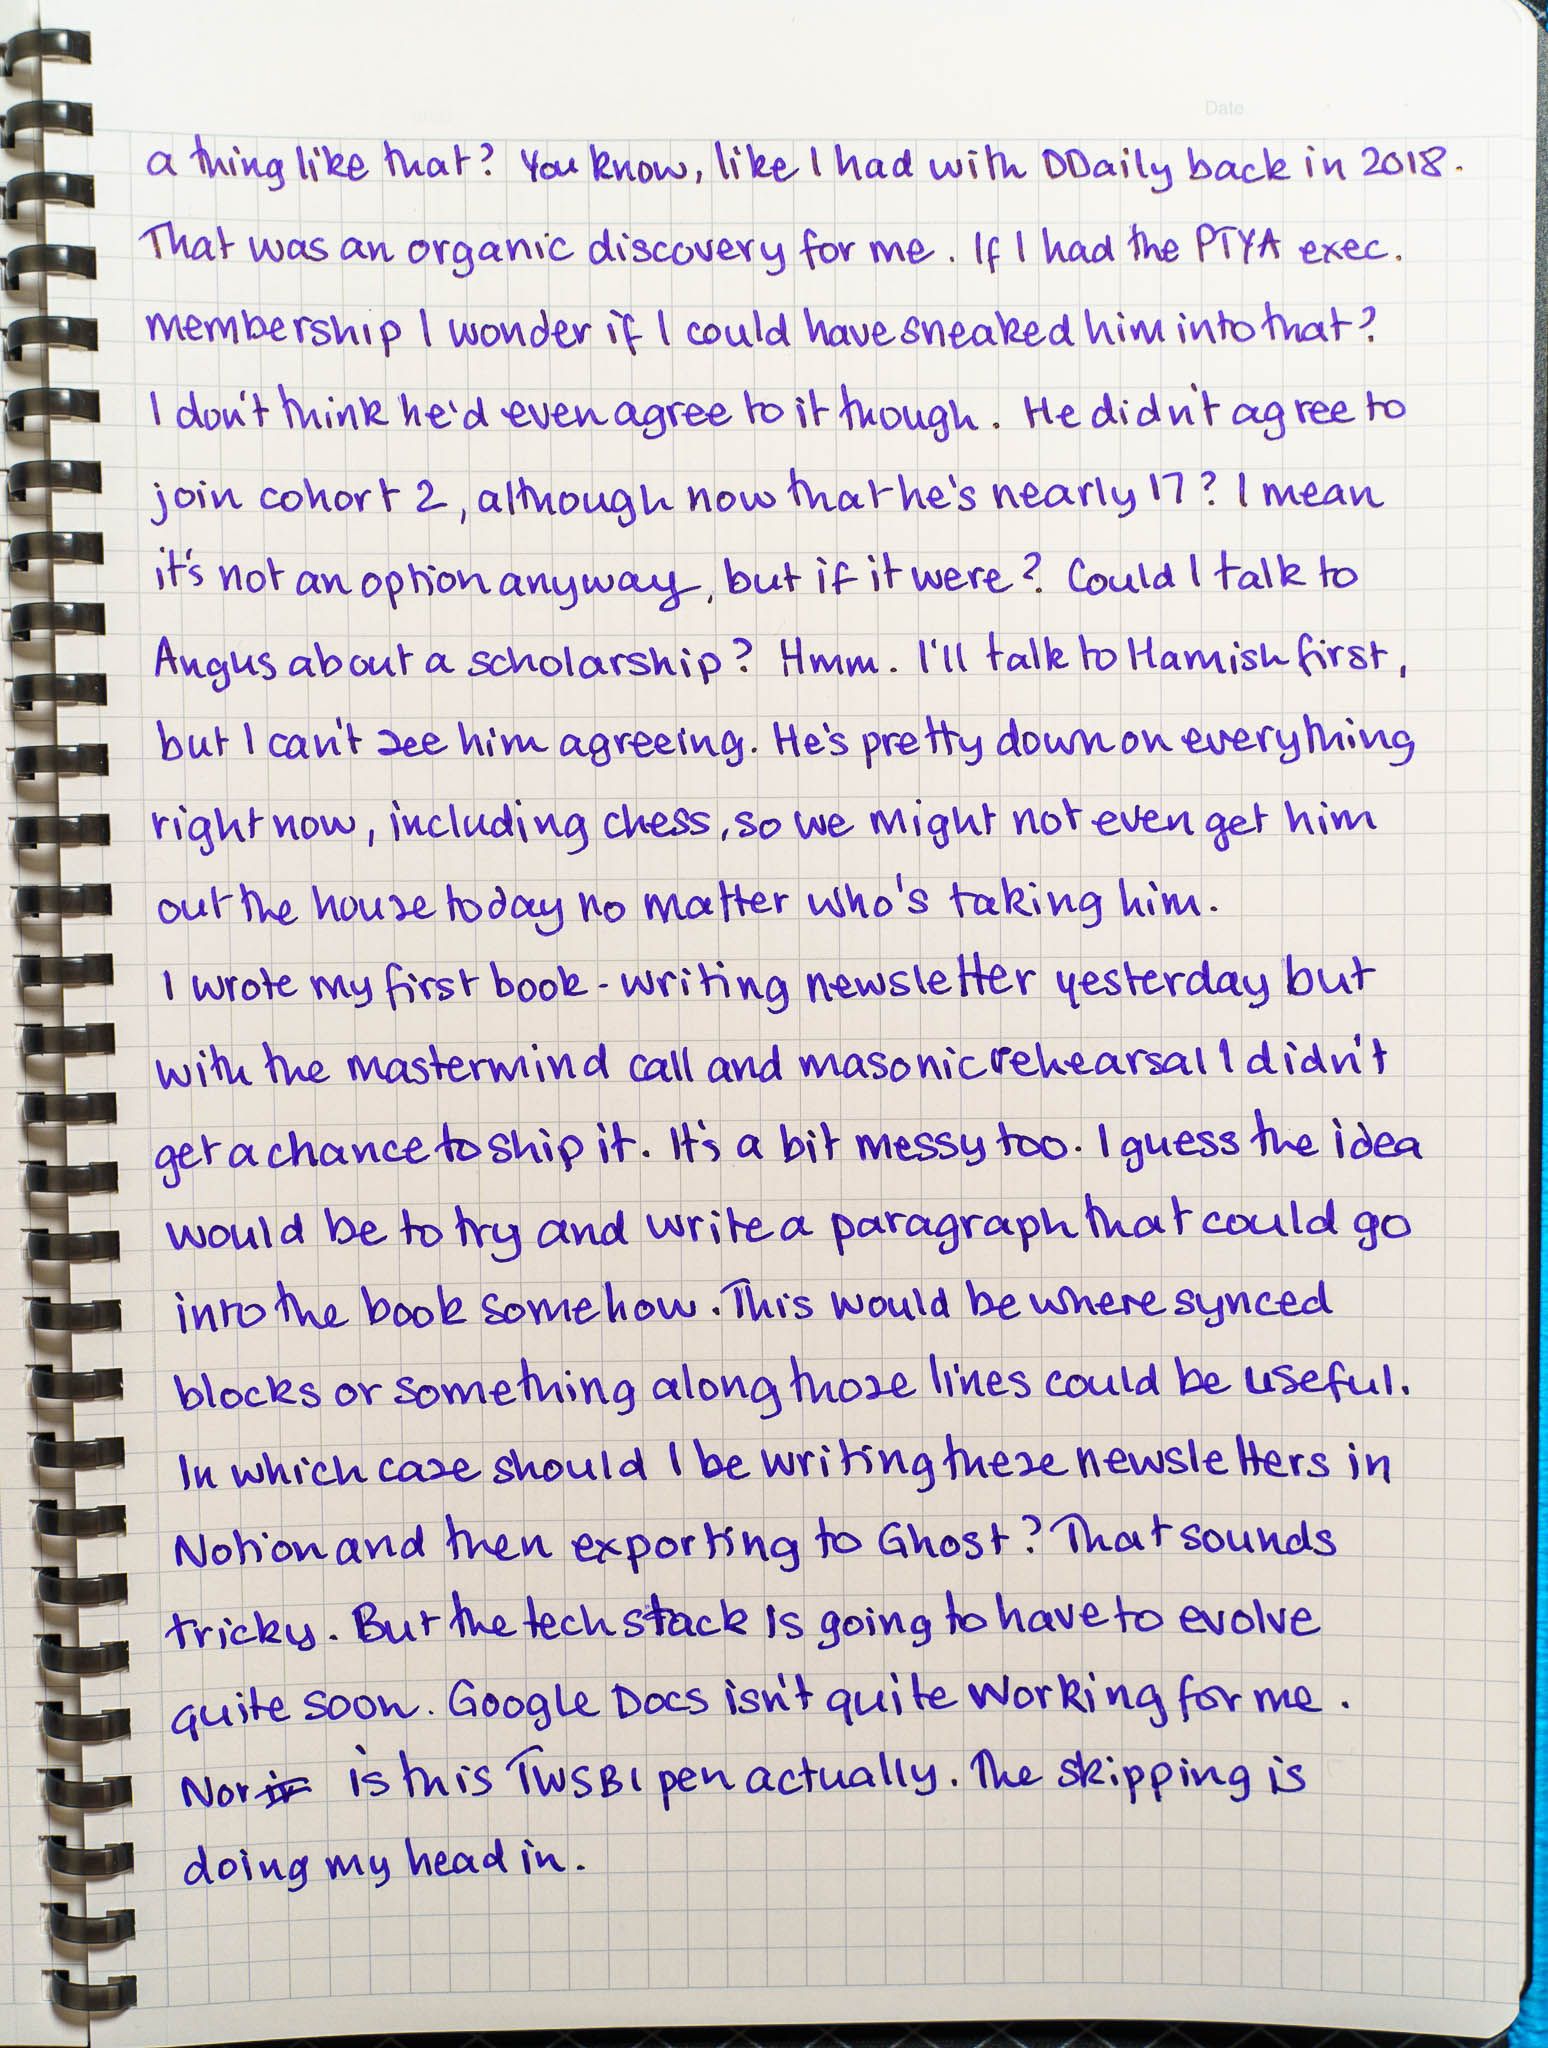 Date
a thing like that? You know, like I had with DDaily back in 2018.
That was an organic discovery for me. If I had the PTYA exec.
membership I wonder if I could have sneaked him into that?
I don't think he'd even agree to it though. He didn't agree to
join cohort 2, although now that he's nearly 17? I mean
it's not an option anyway, but if it were? Could I talk to
Angus about a scholarship? Hmm. I'll talk to Hamish first,
but I can't see him agreeing. He's pretty down on everything
right now, including chess, so we might not even get him
out the house today no matter who's taking him.
I wrote my first book-writing newsletter yesterday but
with the mastermind call and masonic rehearsal I didn't
get a chance to ship it. It's a bit messy too. I guess the idea
would be to try and write a paragraph that could go
into the book somehow. This would be where synced
blocks or something along those lines could be useful.
In which case should I be writing these newsletters in
Notion and then exporting to Ghost? That sounds
tricky. But the tech stack is going to have to evolve
quite soon. Google Docs isn't quite working for me.
Nor is this TWSBI pen actually. The skipping is
doing my head in.